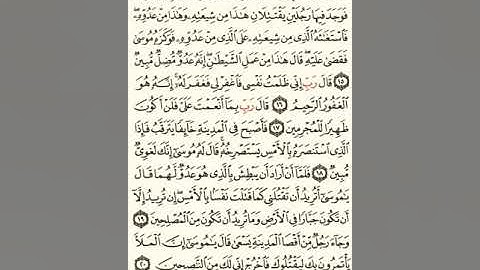 فَوَجَدَ فِيهَا رَجُلَيْنِ يَقْتَتِلَانِ هَٰذَا مِن شِيعَتِهِۦ وَهَٰذَا مِنْ عَدُوِّهِۦۖ
فَٱسْتَغَٰثَهُ ٱلَّذِى مِن شِيعَتِهِۦ عَلَى ٱلَّذِى مِنْ عَدُوِّهِۦ فَوَكَزَهُۥ مُوسَىٰ
فَقَضَىٰ عَلَيْهِۖ قَالَ هَٰذَا مِنْ عَمَلِ ٱلشَّيْطَٰنِۖ إِنَّهُۥ عَدُوٌّ مُّضِلٌّ مُّبِينٌ
١٥ قَالَ رَبِّ إِنِّى ظَلَمْتُ نَفْسِى فَٱغْفِرْ لِى فَغَفَرَ لَهُۥٓۚ إِنَّهُۥ هُوَ
ٱلْغَفُورُ ٱلرَّحِيمُ ١٦ قَالَ رَبِّ بِمَآ أَنْعَمْتَ عَلَىَّ فَلَنْ أَكُونَ
ظَهِيرًا لِّلْمُجْرِمِينَ ١٧ فَأَصْبَحَ فِى ٱلْمَدِينَةِ خَآئِفًا يَتَرَقَّبُ فَإِذَا
ٱلَّذِى ٱسْتَنصَرَهُۥ بِٱلْأَمْسِ يَسْتَصْرِخُهُۥۚ قَالَ لَهُۥ مُوسَىٰٓ إِنَّكَ لَغَوِىٌّ
مُّبِينٌ ١٨ فَلَمَّآ أَنْ أَرَادَ أَن يَبْطِشَ بِٱلَّذِى هُوَ عَدُوٌّ لَّهُمَا قَالَ
يَٰمُوسَىٰٓ أَتُرِيدُ أَن تَقْتُلَنِى كَمَا قَتَلْتَ نَفْسًۢا بِٱلْأَمْسِۖ إِن تُرِيدُ إِلَّآ
أَن تَكُونَ جَبَّارًا فِى ٱلْأَرْضِ وَمَا تُرِيدُ أَن تَكُونَ مِنَ ٱلْمُصْلِحِينَ ١٩
وَجَآءَ رَجُلٌ مِّنْ أَقْصَا ٱلْمَدِينَةِ يَسْعَىٰ قَالَ يَٰمُوسَىٰٓ إِنَّ ٱلْمَلَأَ
يَأْتَمِرُونَ بِكَ لِيَقْتُلُوكَ فَٱخْرُجْ إِنِّى لَكَ مِنَ ٱلنَّٰصِحِينَ ٢٠